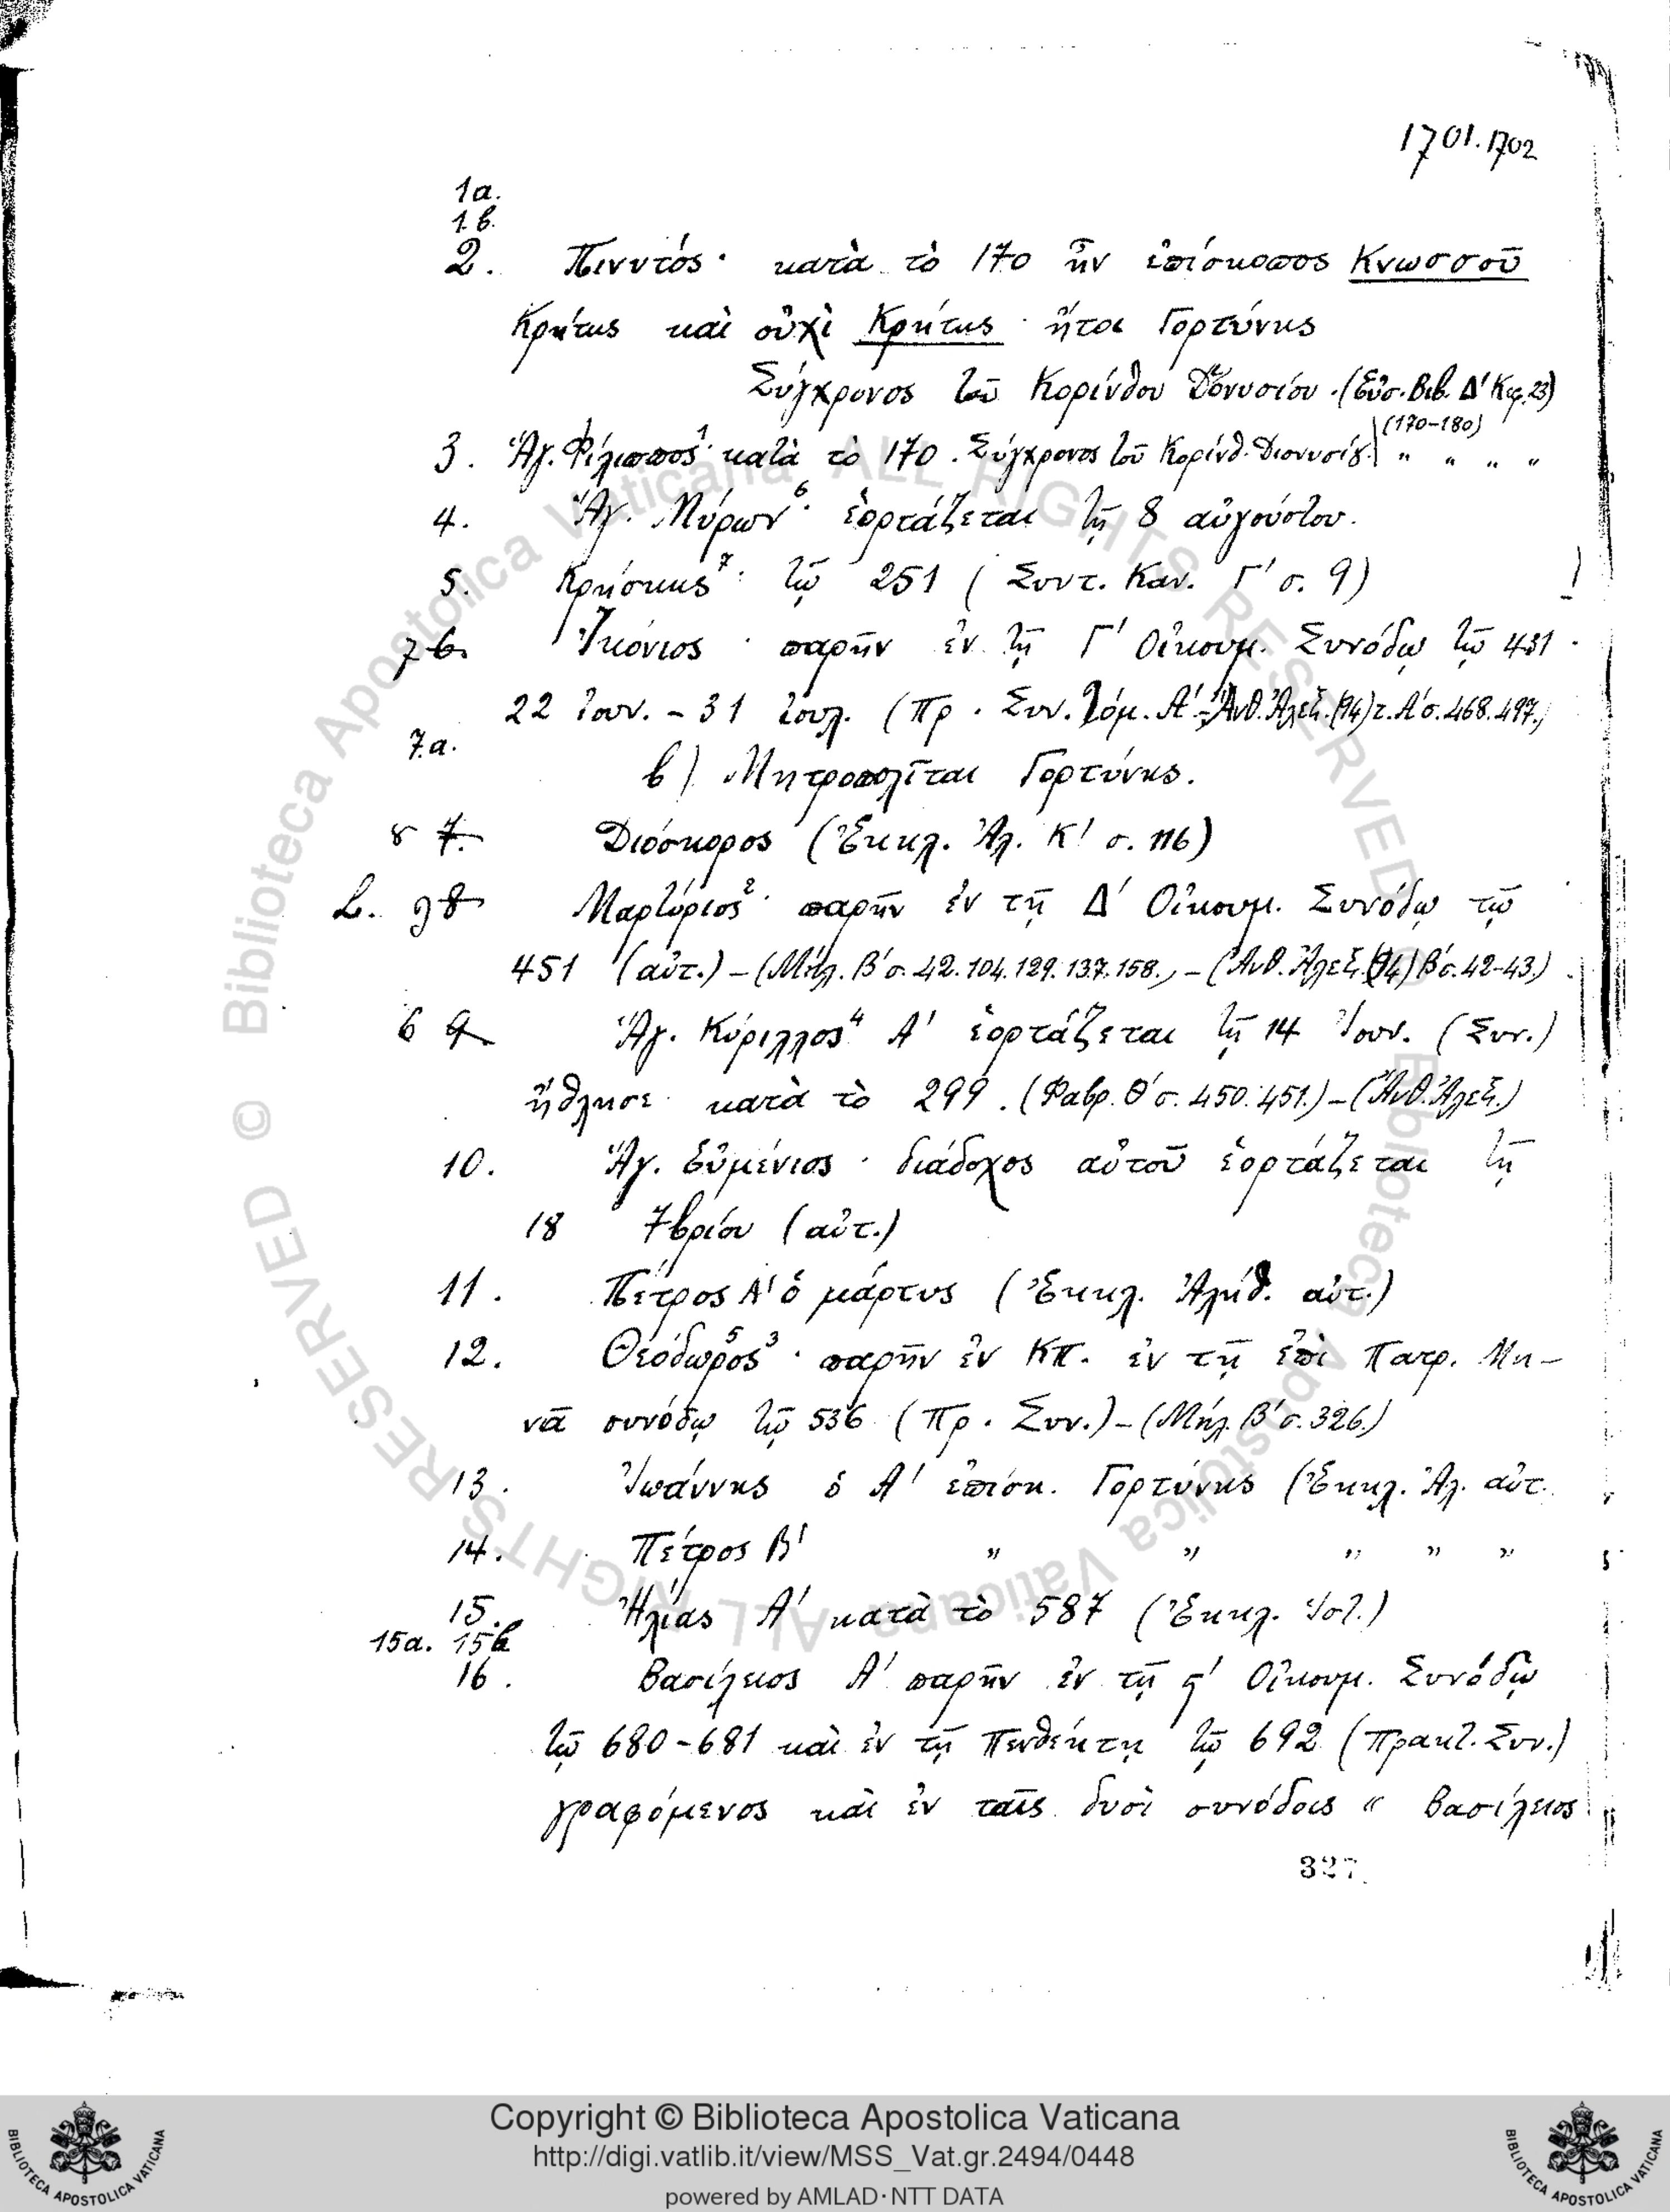 1701.1702
1α.
1.β.
2. Πινυτός· κατὰ τὸ 170 ἦν ἐπίσκοπος Κνωσσοῦ
Κρήτης καὶ οὐχὶ Κρήτης ἤτοι Γορτύνης
Σύγχρονος τοῦ Κορίνθου Διονυσίου. (Εὐσ. Βιβ. Δ' Κεφ. 23)
(170-180)
3. Ἁγ. Φίλιππος¹· κατὰ τὸ 170. Σύγχρονος τοῦ Κορίνθ. Διονυσίου) " " " "
4. Ἁγ. Μύρων⁶· ἑορτάζεται τῇ 8 αὐγούστου.
5. Κρήσκης⁷· τῷ 251 (Συντ. Καν. Γ' σ. 9)
7 6. Ἰκόνιος· παρῆν ἐν τῇ Γ' Οἰκουμ. Συνόδῳ τῷ 431·
22 Ἰουν. - 31 Ἰουλ. (Πρ. Συν. Τόμ. Α' - Ἀνθ. Ἀλεξ. (94) τ. Α' σ. 468. 497.)
7.α.
β) Μητροπολῖται Γορτύνης.
8 7. Διόσκορος (Ἐκκλ. Ἀλ. Κ' σ. 116)
L. 9 8 Μαρτύριος²· παρῆν ἐν τῇ Δ' Οἰκουμ. Συνόδῳ τῷ
451 (αὐτ.) – (Μήλ. Β' σ. 42. 104. 129. 137. 158.) – (Ἀνθ. Ἀλεξ. (94) Β' σ. 42-43.)
6 9 Ἁγ. Κύριλλος⁴ Α' ἑορτάζεται τῇ 14 Ἰουν. (Συν.)
ἤθλησε κατὰ τὸ 299. (Φαβρ. Θ' σ. 450. 451.) – (Ἀνθ. Ἀλεξ.)
10. Ἁγ. Εὐμένιος· διάδοχος αὐτοῦ ἑορτάζεται τῇ
18 7βρίου (αὐτ.)
11. Πέτρος Α' ὁ μάρτυς (Ἐκκλ. Ἀλήθ. αὐτ.)
12. Θεόδωρος⁵ ³· παρῆν ἐν ΚΠ. ἐν τῇ ἐπὶ Πατρ. Μη-
νᾶ συνόδῳ τῷ 536 (Πρ. Συν.) – (Μήλ. Β' σ. 326.)
13. Ἰωάννης ὁ Α' ἐπίσκ. Γορτύνης (Ἐκκλ. Ἀλ. αὐτ.
14. Πέτρος Β' " " " " "
15. Ἠλίας Α' κατὰ τὸ 587 (Ἐκκλ. Ἱστ.)
15α. 15β
16. Βασίλειος Α' παρῆν ἐν τῇ ϛ' Οἰκουμ. Συνόδῳ
τῷ 680-681 καὶ ἐν τῇ Πενθέκτῃ τῷ 692 (Πρακτ. Συν.)
γραφόμενος καὶ ἐν ταῖς δυσὶ συνόδοις « Βασίλειος
327
© Biblioteca Apostolica Vaticana ALL RIGHTS RESERVED © Biblioteca Apostolica Vaticana ALL RIGHTS RESERVED
Copyright © Biblioteca Apostolica Vaticana
http://digi.vatlib.it/view/MSS_Vat.gr.2494/0448
powered by AMLAD·NTT DATA
BIBLIOTECA APOSTOLICA VATICANA
BIBLIOTECA APOSTOLICA VATICANA